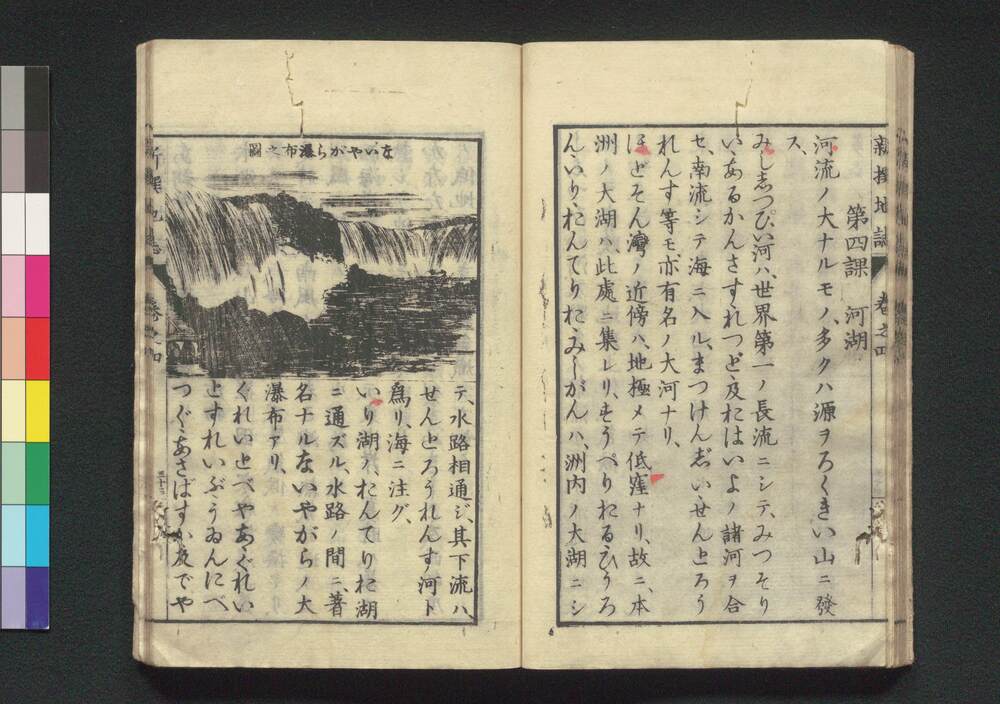 新撰地誌 卷之四
第四課 河湖
河流ノ大ナルモノ、多クハ源ヲろくきい山ニ發
ス、
みししつぴい河ハ、世界第一ノ長流ニシテ、みつそり
いあるかんさすれつど及おはいよノ諸河ヲ合
セ、南流シテ海ニ入ル、まつけんぢい、せんとろう
れんす等モ、亦有名ノ大河ナリ、
ほどそん灣ノ近傍ハ、地極メテ低窪ナリ、故ニ、本
洲ノ大湖ハ、此處ニ集レリ、すうぺりおるひうろ
んいりおんてりおみしがんハ、洲内ノ大湖ニシ
ないやがら瀑布之圖
テ、水路相通ジ、其下流ハ、
せんとろうれんすノ河ト
爲リ、海ニ注グ、
いり湖ノ、おんてりお湖
ニ通ズル、水路ノ間ニ、著
名ナルないやがらノ大
瀑布アリ、
ぐれいとべやあぐれい
とすれいぶうゐんにぺ
つぐあさばすか及でや
新撰地誌 卷之四